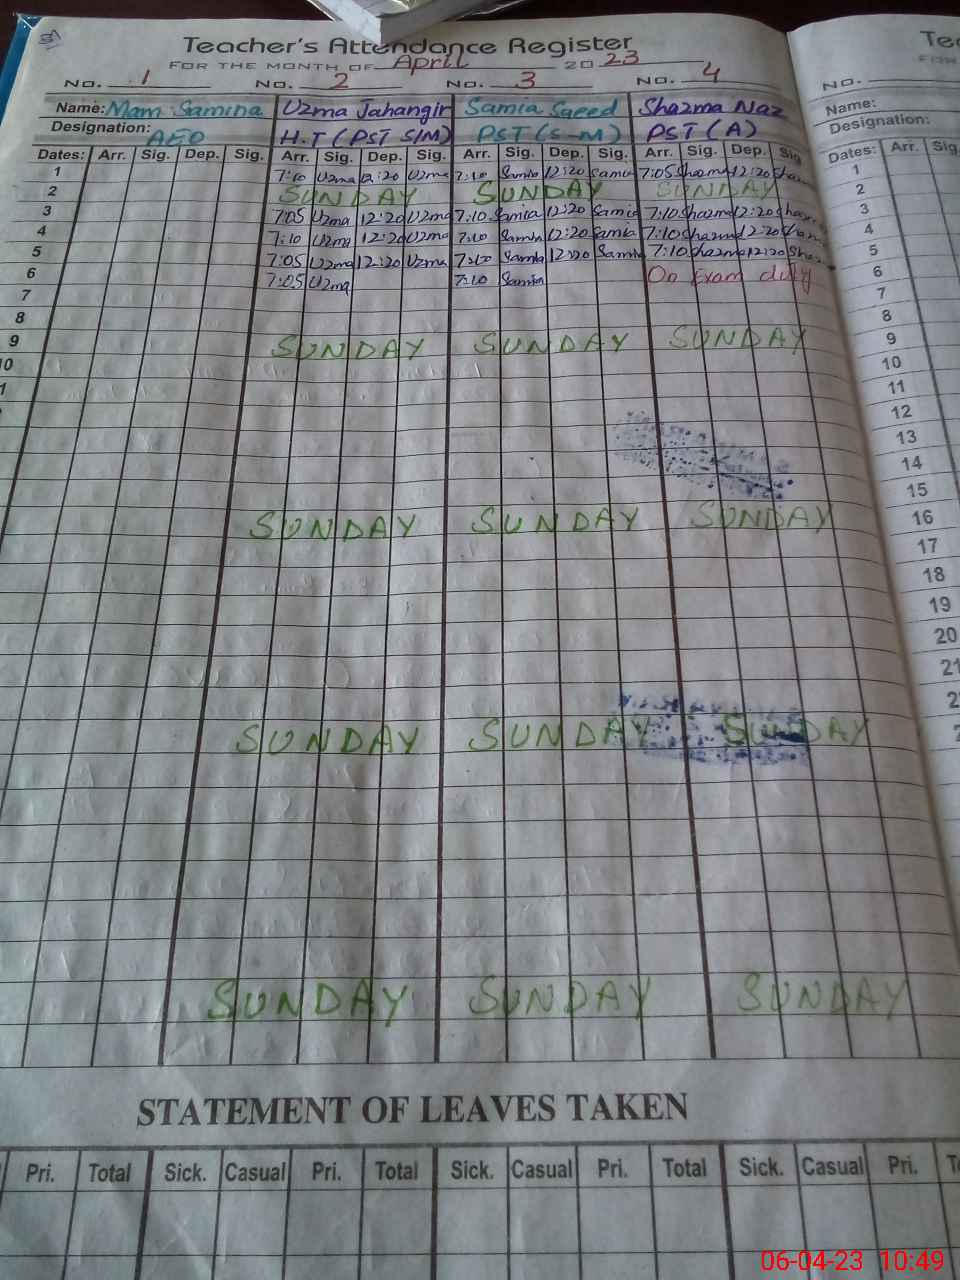 Teacher's Attendance Register
FOR THE MONTH OF April 2023
No. 1 No. 2 No. 3 No. 4
Name: Mam Samina Uzma Jahangir Samia Saeed Shazma Naz
Designation: AEO H.T (PST S/M) PST (S-M) PST (A)
Dates: Arr. Sig. Dep. Sig. Arr. Sig. Dep. Sig. Arr. Sig. Dep. Sig. Arr. Sig. Dep. Sig
1 7:10 Uzma 12:20 Uzma 7:10 Samia 12:20 Samia 7:05 Shazma 12:20
2 SUNDAY SUNDAY SUNDAY
3 7:05 Uzma 12:20 Uzma 7:10 Samia 12:20 Samia 7:10 Shazma 12:20
4 7:10 Uzma 12:20 Uzma 7:10 Samia 12:20 Samia 7:10 Shazma 12:20
5 7:05 Uzma 12:20 Uzma 7:10 Samia 12:20 Samia 7:10 Shazma 12:20
6 7:05 Uzma 7:10 Samia On Exam duty
7
8
9 SUNDAY SUNDAY SUNDAY
10
SUNDAY SUNDAY SUNDAY
SUNDAY SUNDAY SUNDAY
SUNDAY SUNDAY SUNDAY
STATEMENT OF LEAVES TAKEN
Pri. Total Sick. Casual Pri. Total Sick. Casual Pri. Total Sick. Casual Pri.
No.
Name:
Designation:
Dates: Arr. Sig.
1
2
3
4
5
6
7
8
9
10
11
12
13
14
15
16
17
18
19
20
21
06-04-23 10:49